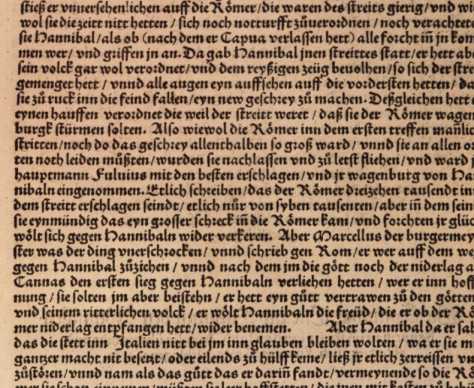 stieß er vnuersehenlichen auff die Römer/die waren des streits gierig/vnd wie
wol sie die zeitt nitt hetten / sich noch notturfft zůuerordnen / noch verachteten
sie Hannibal/als ob (nach dem er Capua verlassen hett) alle forcht in̄ jn kom
men wer/vnd griffen jn an. Da gab Hannibal jnen streittes statt/er hett aber
sein volck gar wol verordnet/vnd dem reyßigen zeüg beuolhen/so sich der streit
gemenget hett / vnnd alle augen eyn auffsehen auff die vordersten hetten / das
sie zů ruck inn die feind fallen/eyn new geschrey zů machen. Deßgleichen hett er
eynen hauffen verordnet die weil der streitt weret / daß sie der Römer wagen
burgk stürmen solten. Also wiewol die Römer inn dem ersten treffen manlich
stritten/noch do das geschrey allenthalben so groß ward / vnnd sie an allen or
ten noth leiden můßten/wurden sie nachlassen vnd zů letst fliehen/vnd ward der
hauptmann Fuluius mit den besten erschlagen/vnd jr wagenburg von Han
nibaln eingenommen. Etlich schreiben/das der Römer dreizehen tausendt in
dem streitt erschlagen seindt/ etlich nůr von syben tausenten/aber in̄ dem seind
sie eynmündig das eyn grosser schreck in̄ die Römer kam/vnd forchten jr glück
wölt sich gegen Hannibaln wider verkeren. Aber Marcellus der burgermey
ster was der ding vnerschrocken/ vnnd schrieb gen Rom/er wer auff dem weg
gegen Hannibal zůziehen / vnnd nach dem jm die gött noch der niderlag a
Cannas den ersten sieg gegen Hannibaln verliehen hetten / wer er inn hoff
nung / sie solten jm aber beistehn / er hett eyn gůtt vertrawen zů den göttern
vnd seinem ritterlichen volck / er wölt Hannibaln die freüd/ die er ob der Rö
mer niderlag entpfangen hett/wider benemen. Aber Hannibal da er sahe
das die stett inn Italien nitt bei jm inn glauben bleiben wolten / wa er sie mit
gantzer macht nit besetzt/ oder eilends zů hülff keme/ ließ jr etlich zerreissen vnd
zůstören/vnnd nam als das gůtt er darin̄ fandt/vermeynende so die Rö